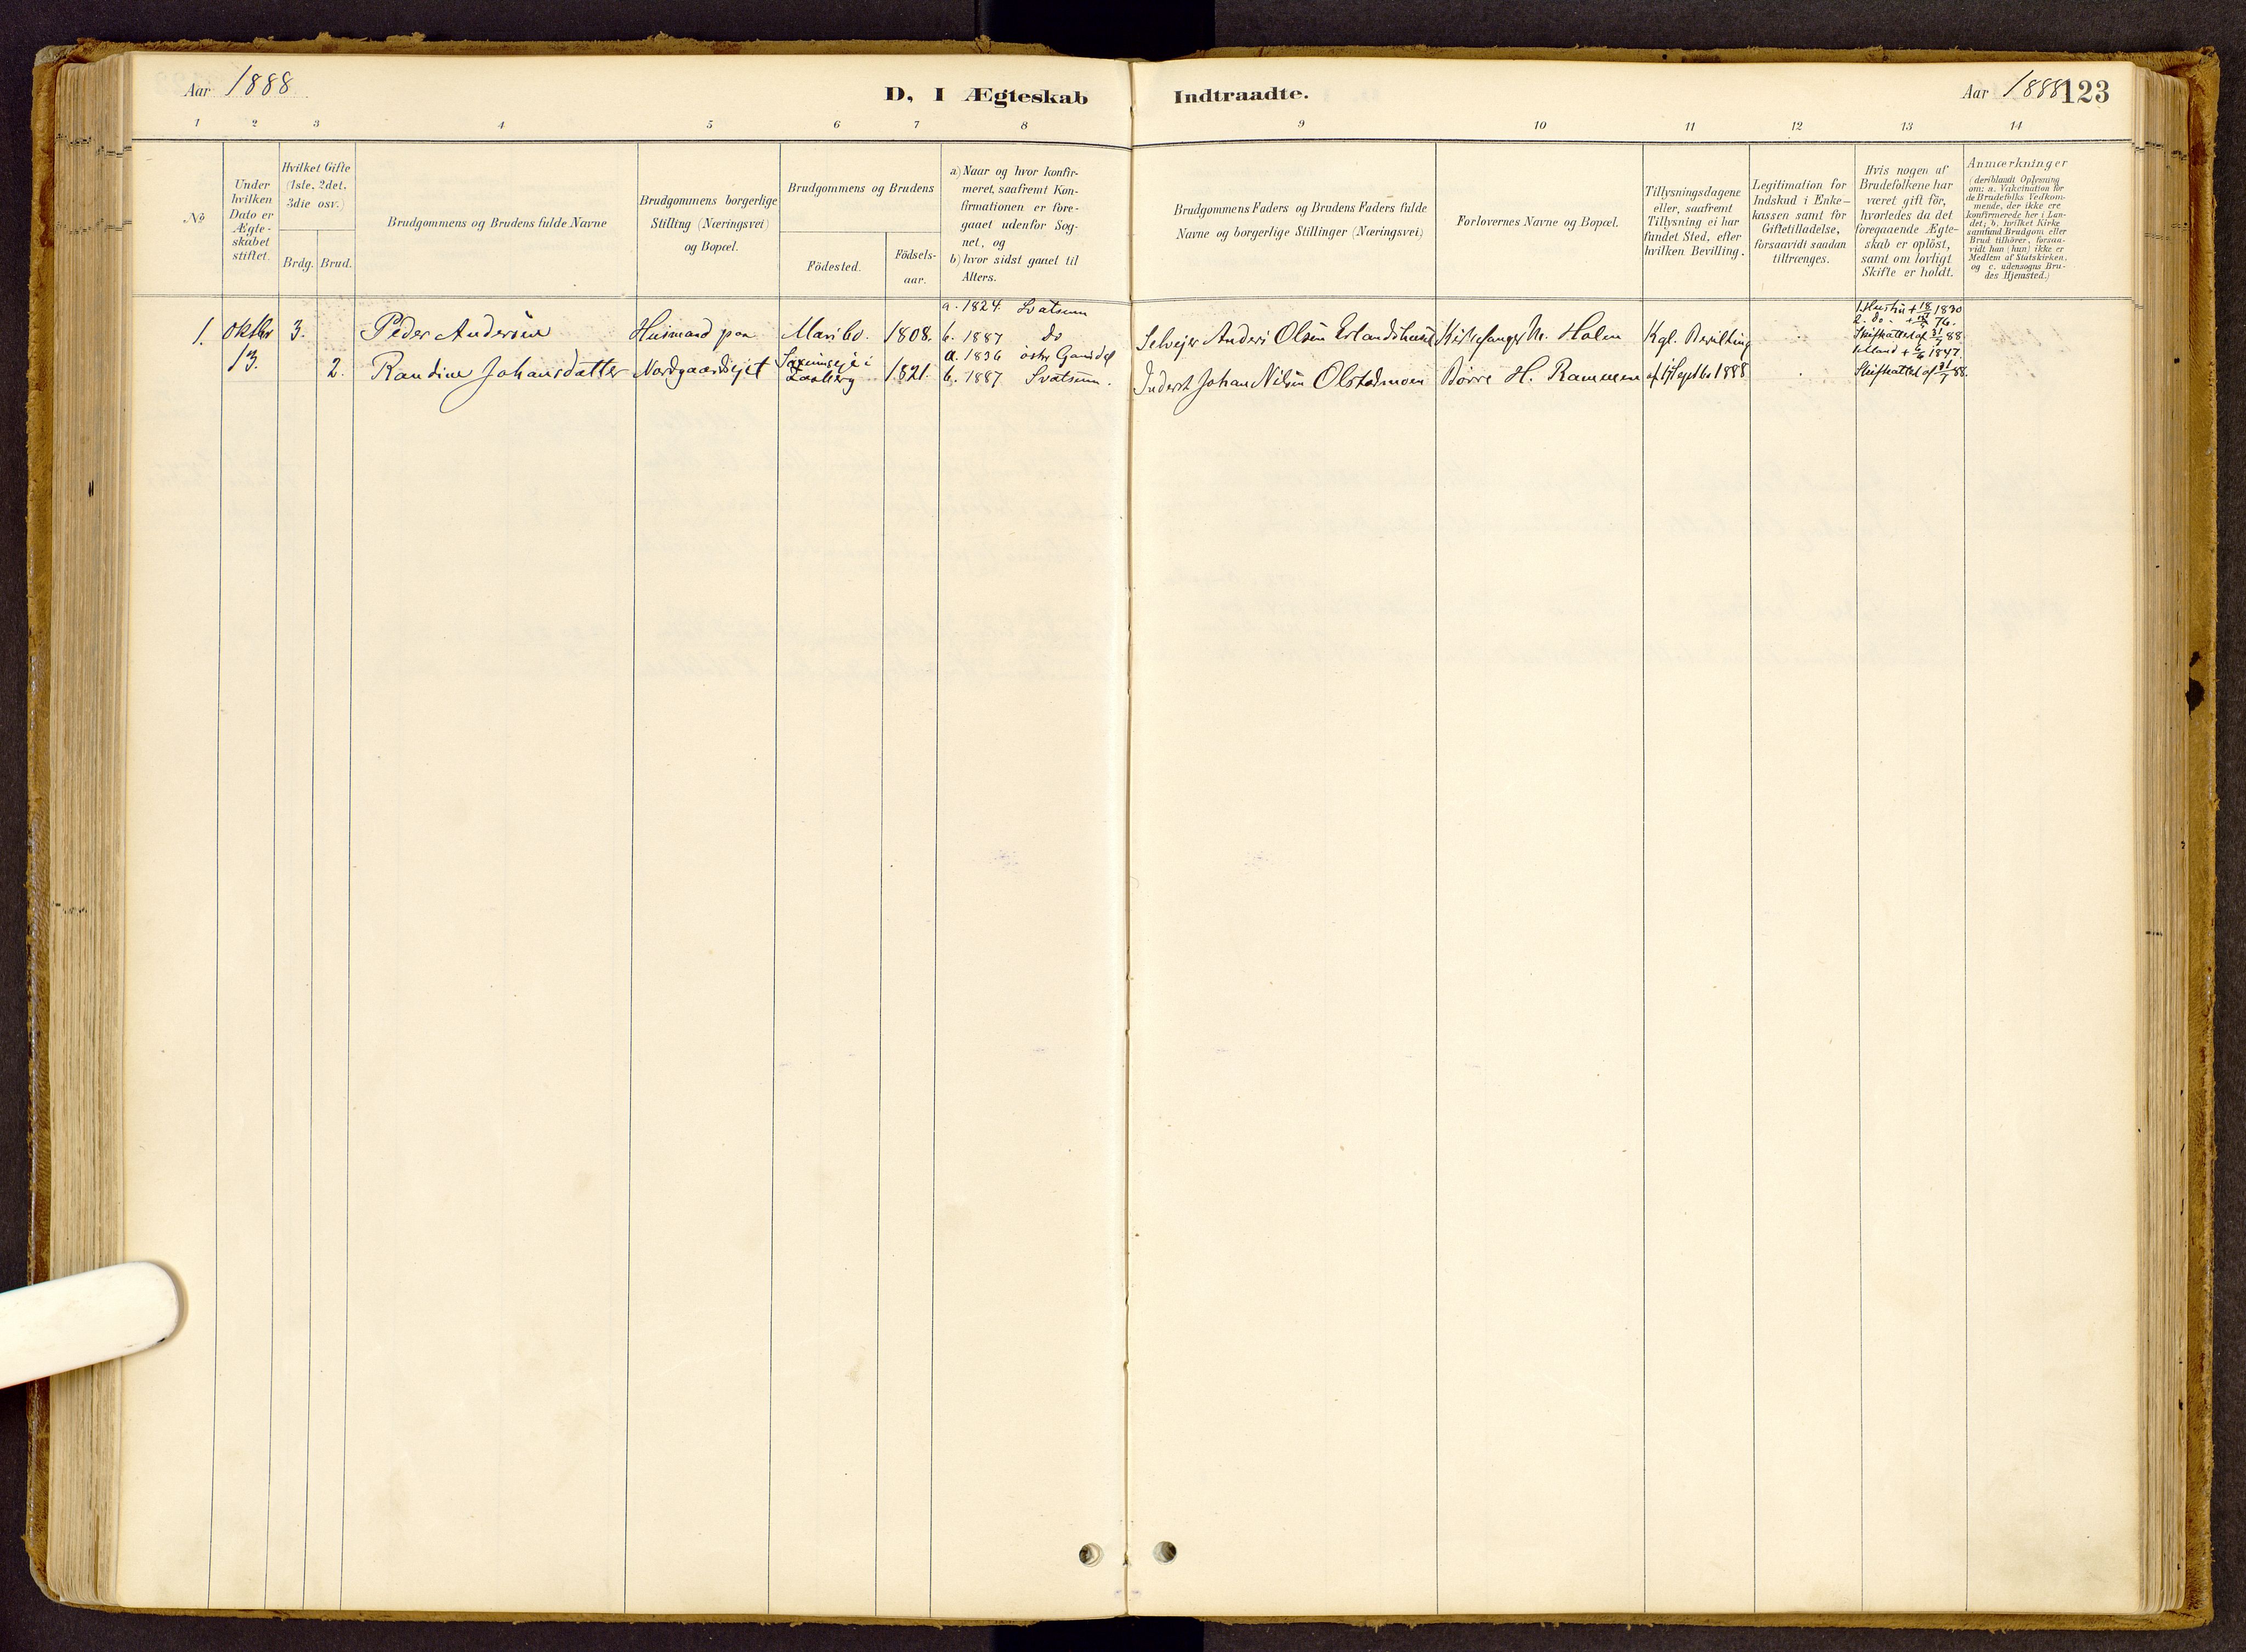 Aar 1888
D, I Ægteskab Indtraadte.
Aar 1888 123
1 2 3 4 5 6 7 8 9 10 11 12 13 14
No
Under
hvilken
Dato er
Ægte-
skabet
stiftet.
Hvilket Gifte
(1ste, 2det,
3die osv.)
Brdg. Brud.
Brudgommens og Brudens fulde Navne
Brudgommens borgerlige
Stilling (Næringsvei)
og Bopæl.
Brudgommens og Brudens
Födested.
Födsels-
aar.
a) Naar og hvor konfir-
meret, saafremt Kon-
firmationen er fore-
gaaet udenfor Sog-
net, og
b) hvor sidst gaaet til
Alters.
Brudgommens Faders og Brudens Faders fulde
Navne og borgerlige Stillinger (Næringsvei)
Forlovernes Navne og Bopæl.
Tillysningsdagene
eller, saafremt
Tillysning ei har
fundet Sted, efter
hvilken Bevilling.
Legitimation for
Indskud i Enke-
kassen samt for
Giftetilladelse,
forsaavidt saadan
tiltrænges.
Hvis nogen af
Brudefolkene har
været gift för,
hvorledes da det
foregaaende Ægte-
skab er oplöst,
samt om lovligt
Skifte er holdt.
Anmærkninger
(deriblandt Oplysning
om: a. Vakcination for
de Brudefolks Vedkom-
mende, der ikke ere
konfirmerede her i Lan-
det; b. hvilket Kirke-
samfund Brudgom eller
Brud tilhörer, forsaa-
vidt han (hun) ikke er
Medlem af Statskirken,
og c. udensogns Bru-
des Hjemsted.)
1. Oktbr 3. Peder Andersen Husmand paa Maribo. 1808. a. 1824 Svatsum
b. 1887 do
Selvejer Anders Olsen Erlandshusel Kirkesanger M. Holen Kgl. Bevilling
1. Hustru + 18/ 1830
2. do. + 76.
Skifteattest af 31/7 88
13. 2. Randine Johansdatter Nordgaardsejet i Laaberg 1821. a. 1836 östr Gausdal
b. 1887 Svatsum.
Inderst Johan Nilsen Olstadmoen Börre H. Rammen af Septbr 1888
+ 1847.
Skifteattest af 31/7 88.